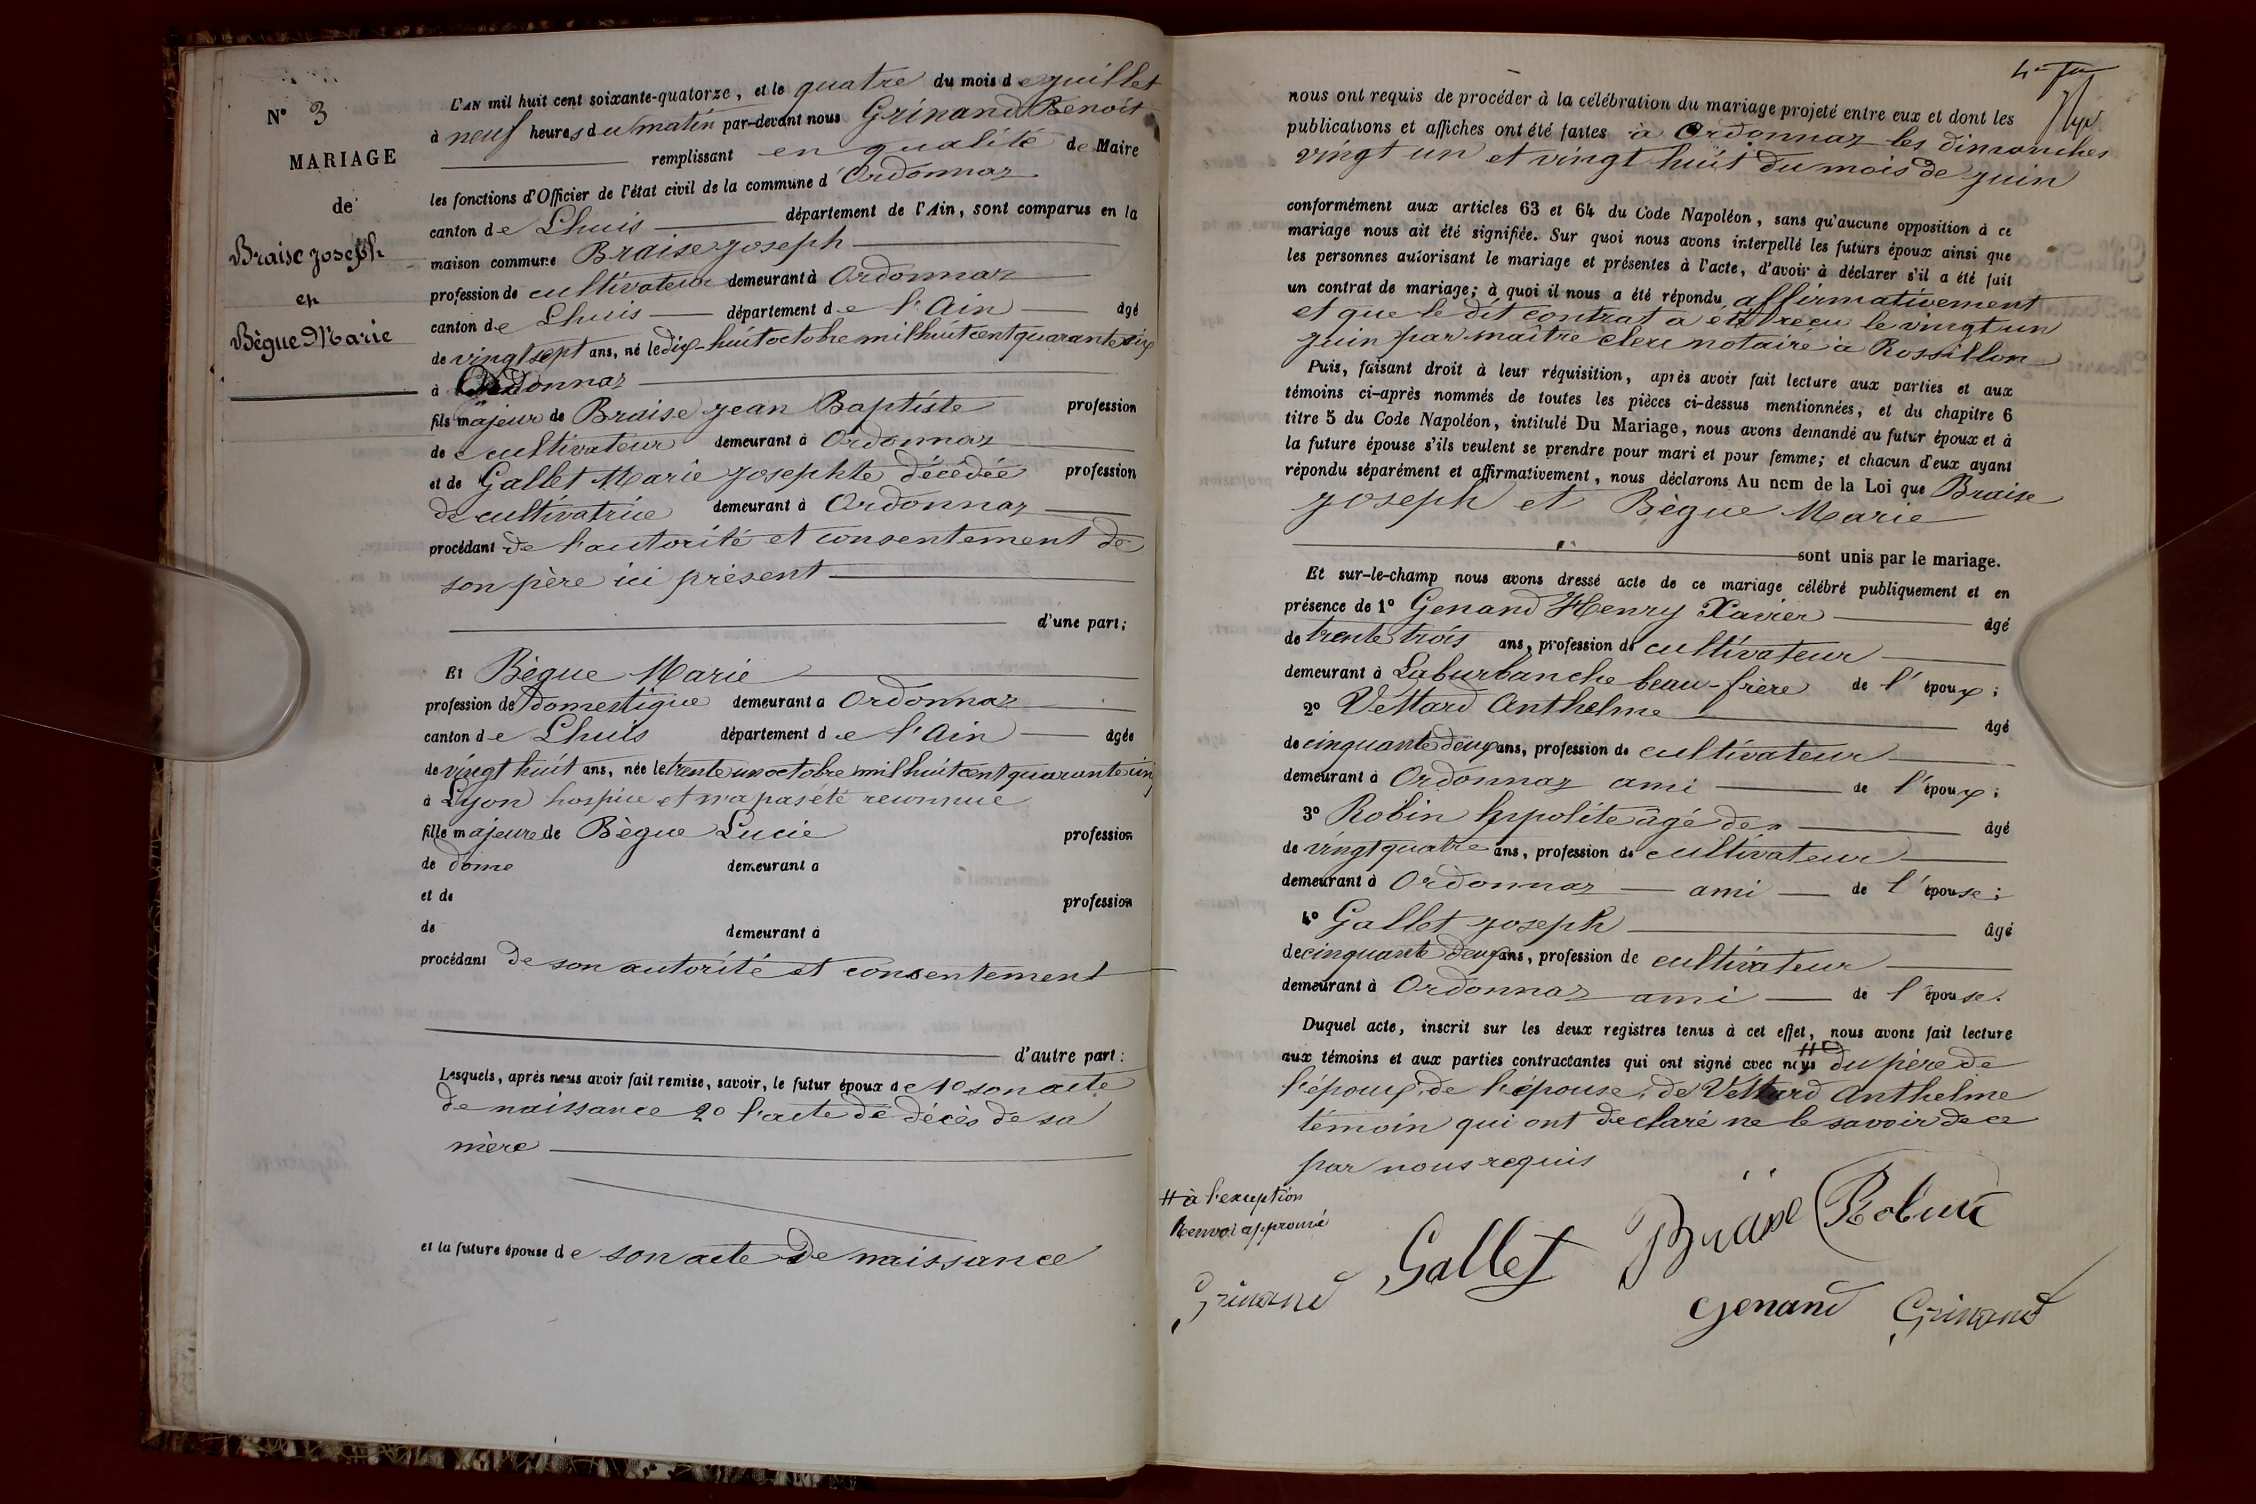 N° 3
MARIAGE
de
Braise Joseph
et
Bègue Marie
L'AN mil huit cent soixante-quatorze, et le quatre du mois de juillet
à neuf heures du matin par-devant nous Grinand Benoit
remplissant en qualité de Maire
les fonctions d'Officier de l'état civil de la commune d'Ordonnaz
canton de Lhuis département de l'Ain, sont comparus en la
maison commune Braise Joseph
profession de cultivateur demeurant à Ordonnaz
canton de Lhuis département de l'Ain âgé
de vingt sept ans, né le dix-huit octobre mil huit cent quarante six
à Ordonnaz
fils majeur de Braise Jean Baptiste profession
de cultivateur demeurant à Ordonnaz
et de Gallet Marie Josephte décédée profession
de cultivatrice demeurant à Ordonnaz
procédant de l'autorité et consentement de
son père ici présent
d'une part;
Et Bègue Marie
profession de domestique demeurant à Ordonnaz
canton de Lhuis département de l'Ain âgée
de vingt huit ans, née le trente un octobre mil huit cent quarante cinq
à Lyon hospice et n'a pas été reconnue
fille majeure de Bègue Lucie profession
de dome demeurant à
et de profession
de demeurant à
procédant de son autorité et consentement
d'autre part:
Lesquels, après nous avoir fait remise, savoir, le futur époux de 1o son acte
de naissance 2o l'acte de décès de sa
mère
et la future épouse de son acte de naissance
nous ont requis de procéder à la célébration du mariage projeté entre eux et dont les
publications et affiches ont été faites à Ordonnaz les dimanches
vingt un et vingt huit du mois de juin
conformément aux articles 63 et 64 du Code Napoléon, sans qu'aucune opposition à ce
mariage nous ait été signifiée. Sur quoi nous avons interpellé les futurs époux ainsi que
les personnes autorisant le mariage et présentes à l'acte, d'avoir à déclarer s'il a été fait
un contrat de mariage; à quoi il nous a été répondu affirmativement
et que le dit contrat a été reçu le vingt un
juin par maître clerc notaire à Rossillon
Puis, faisant droit à leur réquisition, après avoir fait lecture aux parties et aux
témoins ci-après nommés de toutes les pièces ci-dessus mentionnées, et du chapitre 6
titre 5 du Code Napoléon, intitulé Du Mariage, nous avons demandé au futur époux et à
la future épouse s'ils veulent se prendre pour mari et pour femme; et chacun d'eux ayant
répondu séparément et affirmativement, nous déclarons Au nom de la Loi que Braise
Joseph et Bègue Marie
sont unis par le mariage.
Et sur-le-champ nous avons dressé acte de ce mariage célébré publiquement et en
présence de 1° Genand Henry Xavier âgé
de trente trois ans, profession de cultivateur
demeurant à Laburbanche beau-frère de l'époux;
2° Vettard Anthelme âgé
de cinquante deux ans, profession de cultivateur
demeurant à Ordonnaz ami de l'époux;
3° Robin hypolite âgé de âgé
de vingt quatre ans, profession de cultivateur
demeurant à Ordonnaz ami de l'épouse;
4° Gallet Joseph âgé
de cinquante deux ans, profession de cultivateur
demeurant à Ordonnaz ami de l'épouse.
Duquel acte, inscrit sur les deux registres tenus à cet effet, nous avons fait lecture
aux témoins et aux parties contractantes qui ont signé avec nous # du père de
l'époux, de l'épouse, de Vettard Anthelme
témoin qui ont déclaré ne le savoir de ce
par nous requis
# à l'exception
Renvoi approuvé
Grinand Gallet Braise Robin
Genand Grinand